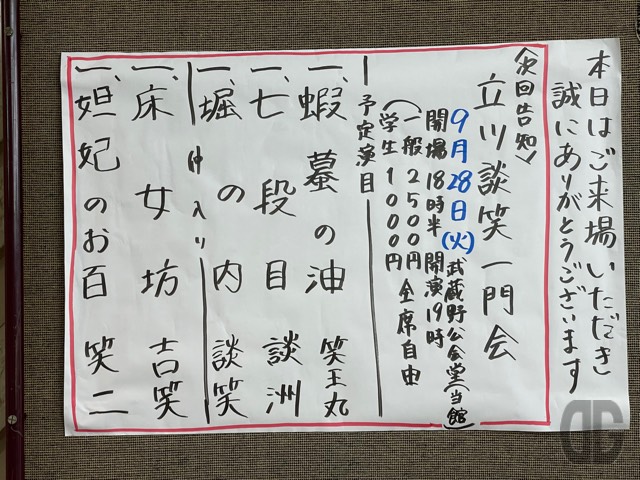 本日はご来場いただき
誠にありがとうございます
〈次回告知〉
立川談笑一門会
9月28日(火)武蔵野公会堂(当館)
開場18時半 開演19時
(一般2500円
学生1000円 全席自由
予定演目
一、蝦蟇の油 笑王丸
一、七段目 談洲
一、堀の内 談笑
仲入り
一、床女坊 吉笑
一、妲妃のお百 笑二
DG